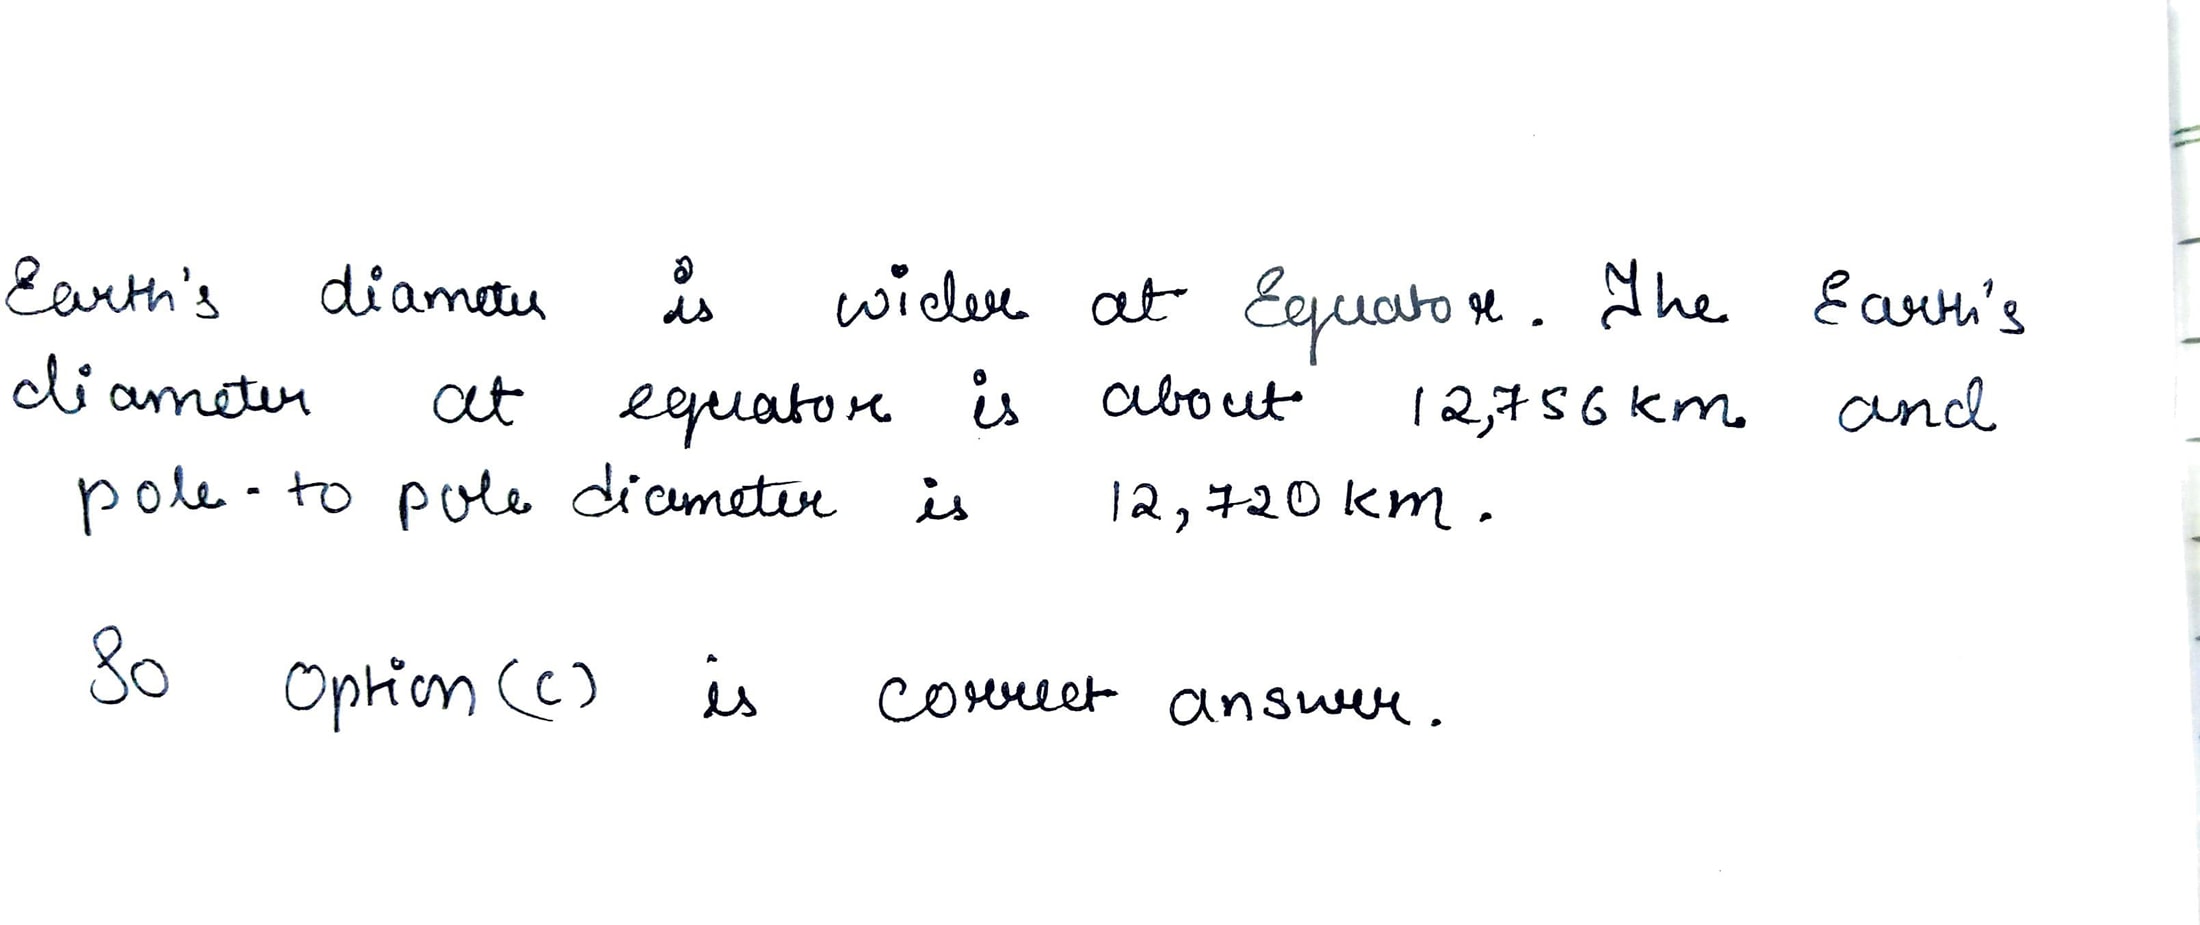 Earth's diameter is wider at Equator. The Earth's
diameter at equator is about 12,756 km and
pole-to pole diameter is 12,720 km.
So Option (c) is correct answer.